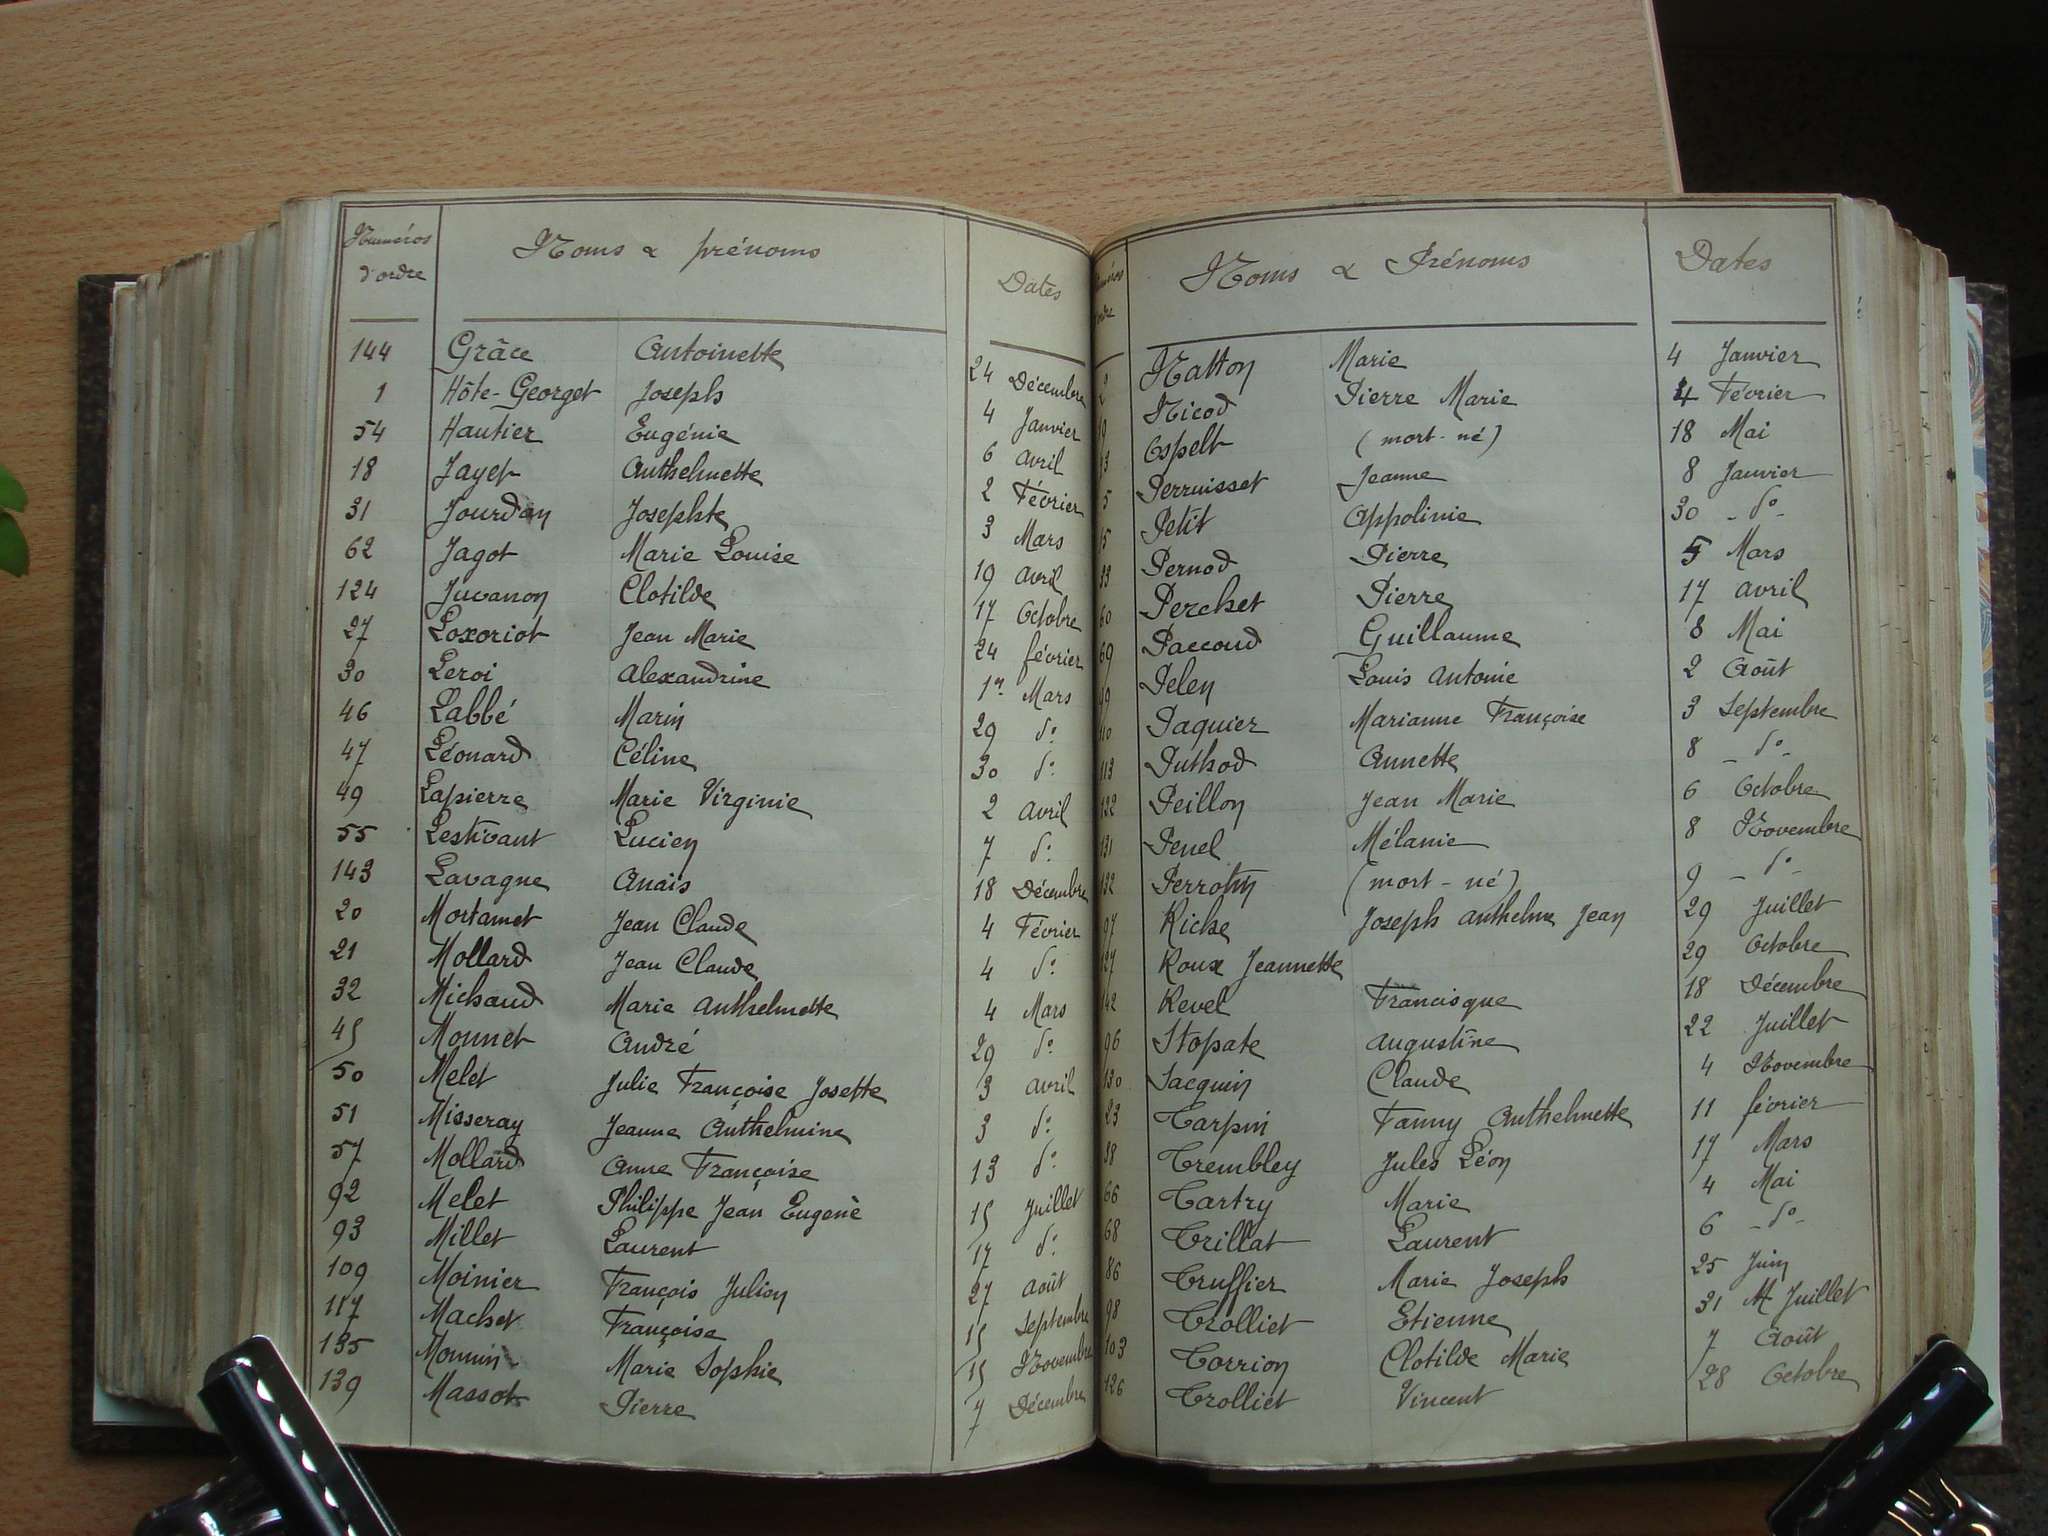 Numéros d'ordre Noms & prénoms Dates
144 Grâce Antoinette 24 Décembre
1 Hôte-Georget Joseph 4 Janvier
54 Hautier Eugénie 6 Avril
18 Jayet Anthelmette 2 Février
31 Jourdan Josephte 3 Mars
62 Jagot Marie Louise 19 Avril
124 Juvanon Clotilde 17 Octobre
27 Loxoriot Jean Marie 24 février
30 Leroi Alexandrine 1er Mars
46 Labbé Marin 29 do
47 Léonard Céline 30 do
49 Lapierre Marie Virginie 2 Avril
55 Lestivant Lucien 7 do
143 Lavagne Anaïs 18 Décembre
20 Mortamet Jean Claude 4 Février
21 Mollard Jean Claude 4 do
32 Michaud Marie Anthelmette 4 Mars
45 Monnet André 29 do
50 Melet Julie Françoise Josette 3 Avril
51 Misseray Jeanne Anthelmine 3 do
57 Mollard Anne Françoise 13 do
92 Melet Philippe Jean Eugène 15 Juillet
93 Millet Laurent 17 do
109 Moinier François Julien 27 Août
117 Machet Françoise 15 Septembre
135 Monnin Marie Sophie 15 Novembre
139 Massot Pierre 7 Décembre
Noms & Prénoms Dates
Natton Marie 4 Janvier
Nicod Pierre Marie 4 Février
Espelt (mort-né) 18 Mai
Perruisset Jeanne 8 Janvier
Petit Appolinie 30 - do -
Pernod Pierre 5 Mars
33 Perchet Pierre 17 Avril
60 Paccoud Guillaume 8 Mai
69 Pelen Louis Antonie 2 Août
Paquier Marianne Françoise 3 Septembre
110 Puthod Annette 8 - do -
113 Peillon Jean Marie 6 Octobre
122 Penel Mélanie 8 Novembre
131 Perrotin (mort-né) 9 - do -
132
97 Riche Joseph Anthelme Jean 29 Juillet
127 Roux Jeannette 29 Octobre
142 Revel Francisque 18 Décembre
96 Stopate Augustine 22 Juillet
130 Sacquin Claude 4 Novembre
23 Tarpin Fanny Anthelmette 11 février
38 Trembley Jules Léon 17 Mars
66 Tartry Marie 4 Mai
68 Trillat Laurent 6 - do -
86 Truffier Marie Joseph 25 Juin
98 Trolliet Etienne 31 Juillet
103 Torrion Clotilde Marie 7 Août
126 Trolliet Vincent 28 Octobre